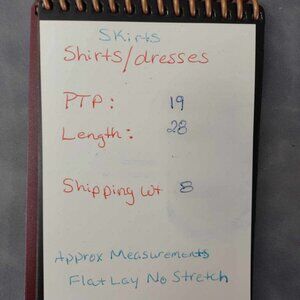 Skirts
Shirts/dresses
PTP: 19
Length: 28
Shipping wt 8
Approx Measurements
Flat Lay No Stretch